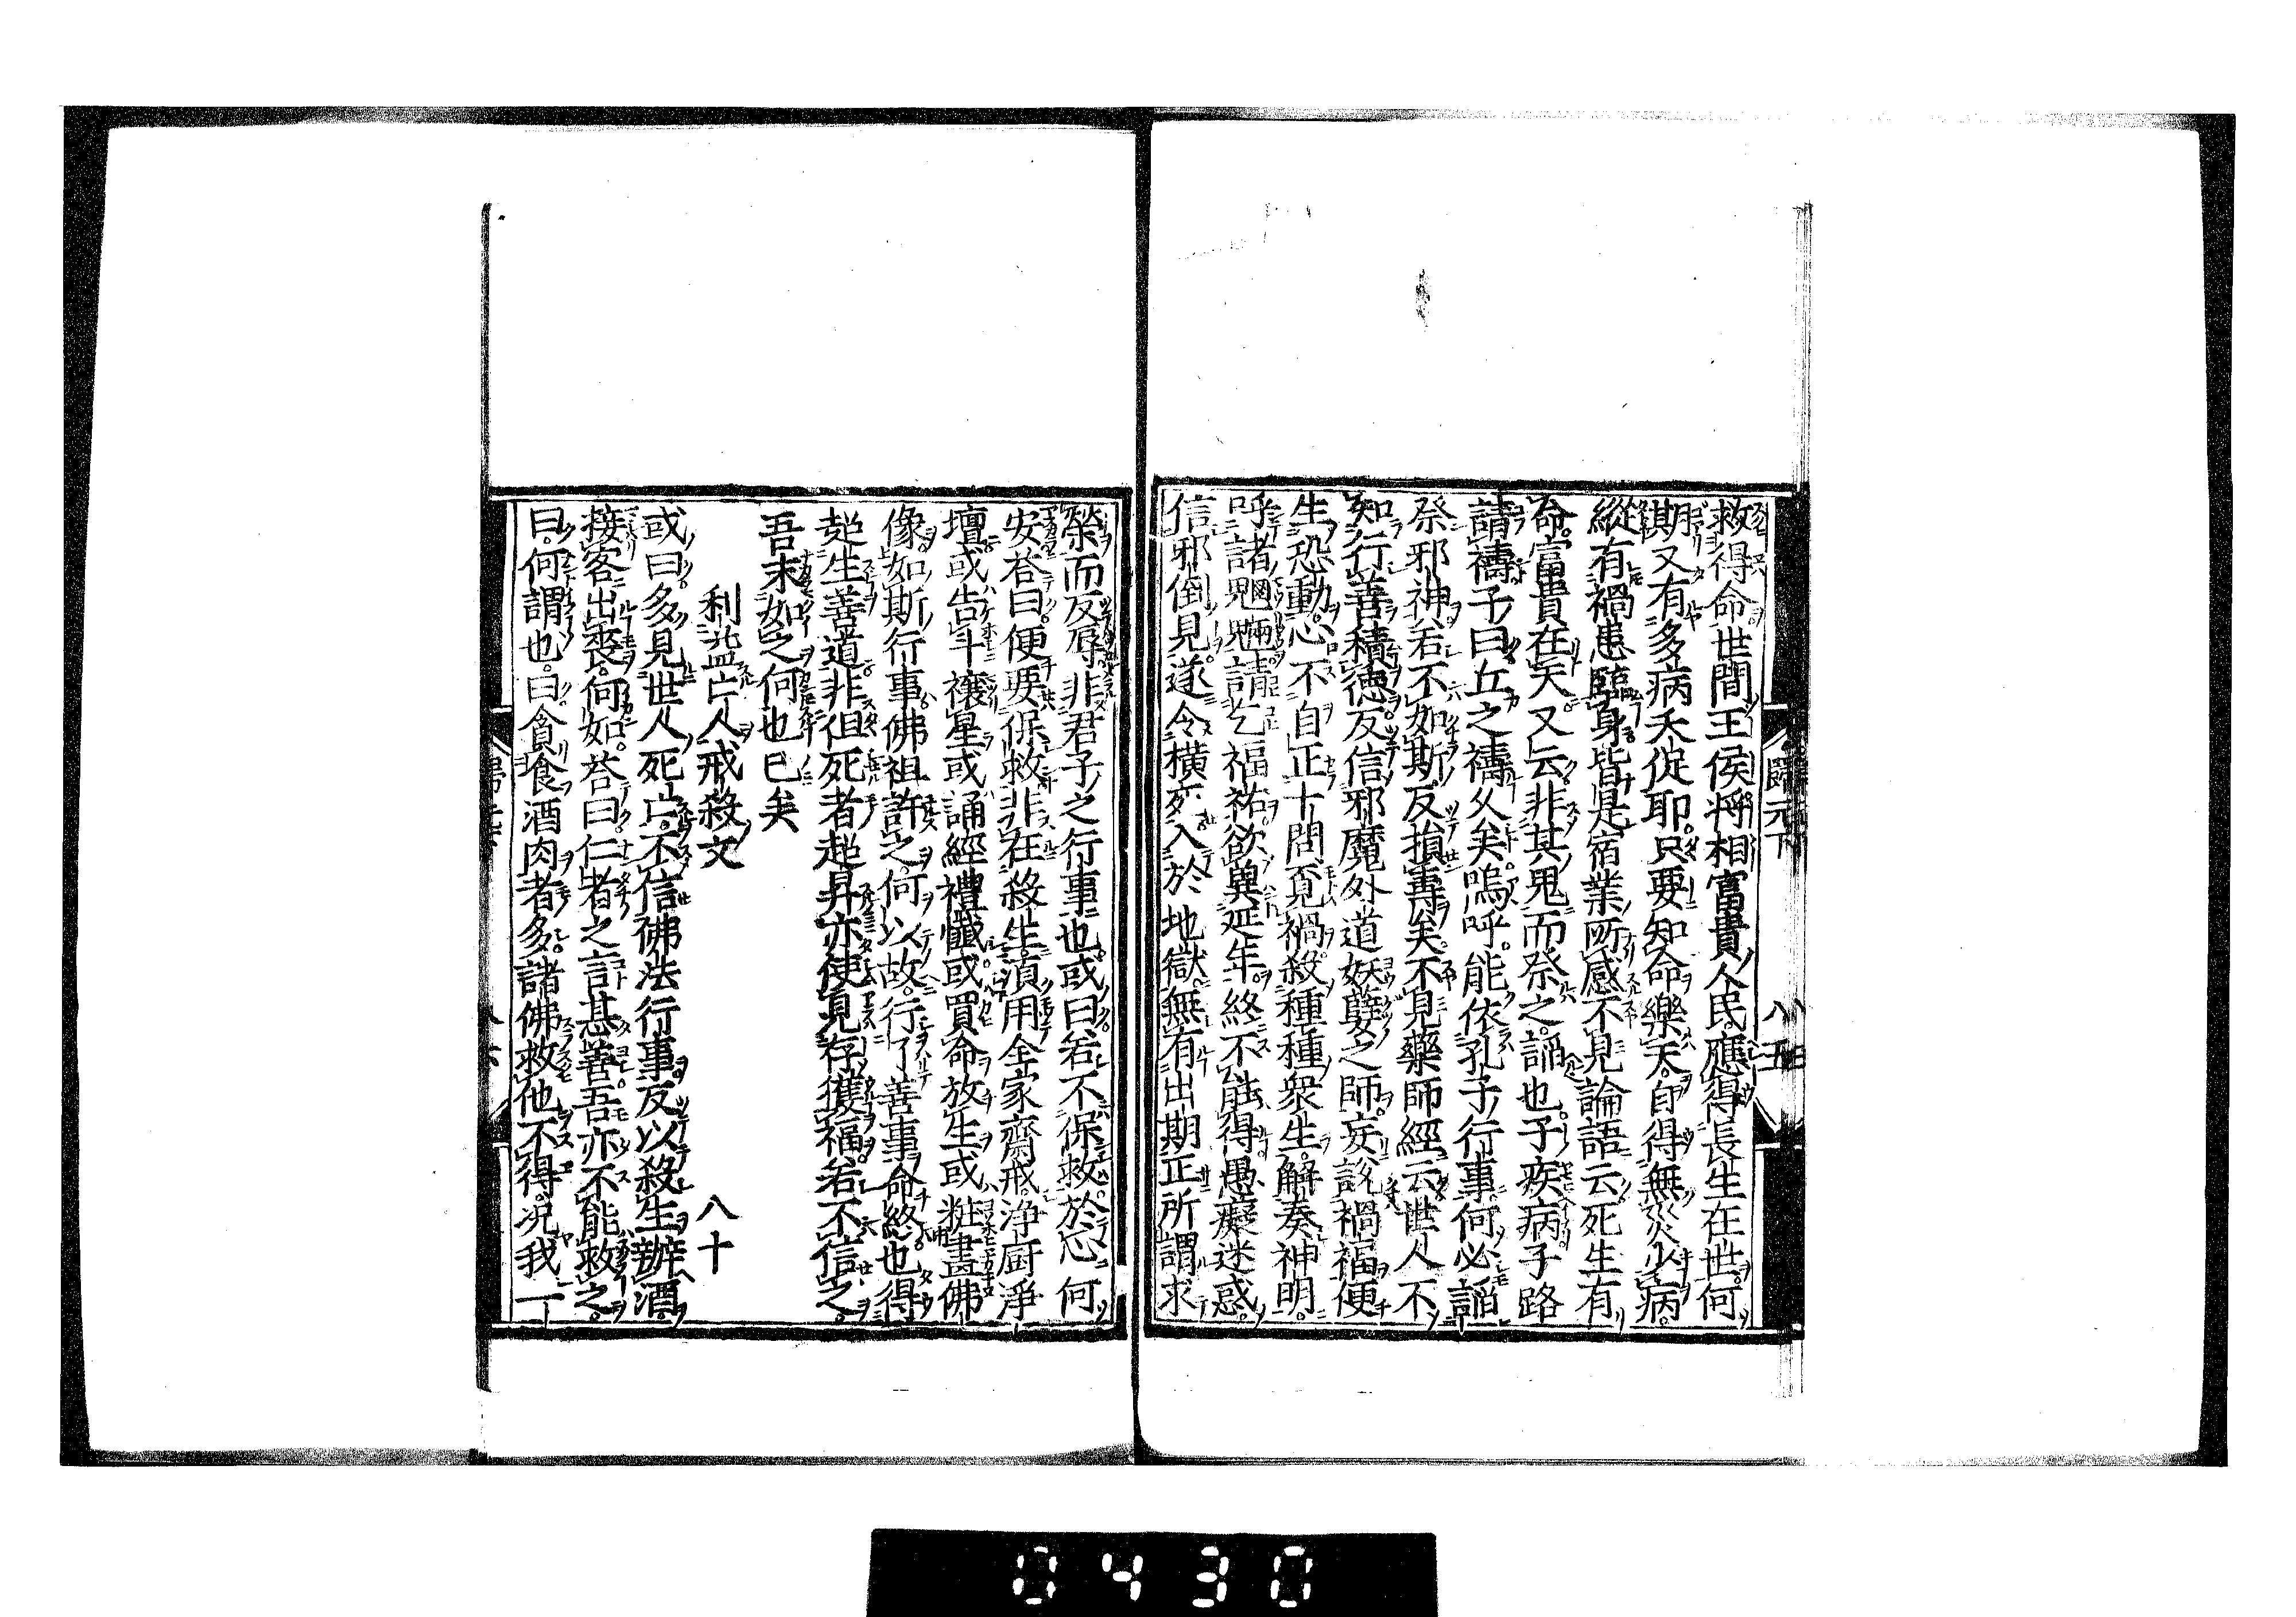 救得命世間王侯將相富貴人民應得長生在世何
期又有多病夭促耶只要知命樂天自得無災少病
縱有禍患臨身皆是宿業所感不見論語云死生有
命富貴在天又云非其鬼而祭之諂也子疾病子路
請禱子曰丘之禱久矣嗚呼能依孔子行事何必諂
祭邪神若不如斯反損壽矣不見藥師經云世人不
知行善積德反信邪魔外道妖孽之師妄說禍福便
生恐動心不自正卜問覓禍殺種種衆生解奏神明
呼諸魍魎請乞福祐欲冀延年終不能得愚癡迷惑
信邪倒見遂令橫死入於地獄無有出期正所謂求
歸元下
八十五
榮而反辱非君子之行事也或曰若不保救於心何
安荅曰便要保救非在殺生須用全家齋戒淨厨淨
壇或告斗禳星或誦經禮懺或買命放生或粧畫佛
像如斯行事佛祖許之何以故行了善事命終也得
超生善道非徂死者超昇亦使見存獲福若不信之
吾末如之何也已矣
利益亡人戒殺文 八十
或曰多見世人死亡不信佛法行事反以殺生辦酒
接客出喪何如荅曰仁者之言甚善吾亦不能救之
曰何謂也曰貪食酒肉者多諸佛救他不得况我一
0430